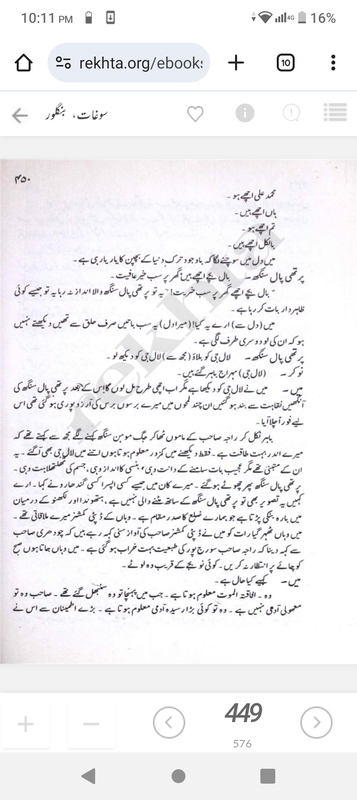 10:11 PM
4G
16%
rekhta.org/ebook
10
سوغات، بنگلور
۴۵۰
محمد علی اچھے ہو ۔
ہاں اچھے ہیں ۔
تم اچھے ہو ۔
بالکل اچھے ہیں ۔
میں دل میں سوچنے لگا کہ باوجود ترک دنیا کے بچپن کا یارباریہی ہے ۔
پرتھی پال سنگھ ۔ بال بچے اچھے ہیں گھر پر سب خیر عافیت ۔
” بال بچے اچھے گھر پر سب خیریت ! “ یہ تو پرتھی پال سنگھ والا انداز نہ رہا یہ تو جیسے کوئی
ظاہردار بات کر رہا ہے ۔
میں (دل سے) ارے یہ کیا! (میرا دل) یہ سب باتیں صرف حلق سے تھیں دیکھتے نہیں
ہو کہ ان کی لو دوسری طرف لگی ہے ۔
پرتھی پال سنگھ ۔ لال جی کو بلاؤ (مجھ سے) لال جی کو دیکھ لو ۔
نوکر ۔ (لال جی) مہراج باہر گئے ہیں ۔
میں ۔ میں نے لال جی کو دیکھا ہے مگر اب اچھی طرح مل لوں گا اس کے بعد پرتھی پال سنگھ کی
آنکھیں نقاہت سے بند ہو گئیں ان چند لمحوں میں میرے برسوں برس کی آرزو پوری ہو گئی تھی اس
لیے فوراً چلا آیا ۔
باہر نکل کر راجہ صاحب کے ماموں ٹھاکر جگ موہن سنگھ کہنے لگے مجھ سے کہتے تھے کہ
میرے اندر بہت طاقت ہے ۔ فقط دیکھنے میں کمزور معلوم ہوتا ہوں اتنے میں لال جی بھی آ گئے ۔ یہ
ان کے متبنیٰ تھے مگر عجیب بات سامنے کے دانت وہی ، ہنسی کا انداز وہی ، جسم کی
پرتھی پال سنگھ پھر چھوٹے ہو گئے ۔ میرے کان میں جیسے کسی اپسرا کسی گندھار نے کہا ۔ ارے
کہیں یہ تصویر بھی تو پرتھی پال سنگھ کے ساتھ مٹنے والی نہیں ہے ، ہتھوندا اور لکھنؤ کے درمیان
میں بارہ بنکی پڑتا ہے جو ہمارے ضلع کا صدر مقام ہے ۔ وہاں کے ڈپٹی کمشنر میرے ملاقاتی تھے ۔
میں وہاں ٹھہر گیا رات کو میں نے ڈپٹی کمشنر صاحب کی آواز سنی کہہ رہے ہیں کہ چودھری صاحب
سے کہہ دینا کہ راجہ صاحب سورج پور کی طبیعت بہت خراب ہو گئی ہے ۔ میں وہاں جاتا ہوں صبح
کو چائے پر انتظار نہ کریں ۔ کوئی نو بجے کے قریب وہ لوٹے ۔
میں ۔ کہیے کیا حال ہے ۔
وہ ۔ افاقتہ الموت معلوم ہوتا ہے ۔ جب میں پہنچا تو وہ سنبھل گئے تھے ۔ صاحب وہ تو
معمولی آدمی نہیں ہے ۔ وہ تو کوئی بڑا رسیدہ آدمی معلوم ہوتا ہے ۔ بڑے اطمینان سے اس نے
rekhta
449
576